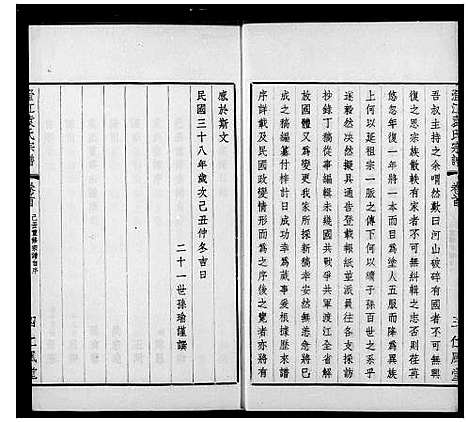 吾叔主持之余喟然歎曰河山破碎有國者不可無興
復之思宗族散軼有宋者不可無糾輯之志否則荏苒
悠忽年復一年將一本而目為塗人五服而降為異族
上何以延祖宗一脈之傳下何以續子孫百世之系乎
遂毅然決然擬具通告登報紙並派員往各支採訪
抄錄丁稿從事編輯未幾國共戰爭共軍渡江全省解
放國體又為變更我族所採新稿幸安然無恙急將已
成之稿編纂付梓計日成功幸為蕆事爰根據歷來譜
序詳載及民國政變情形而為之序後之覽者亦將有
感於斯文
民國三十八年歲次己丑仲冬吉日
二十一世孫瑜謹譔
澄江袁氏宗譜
卷首
三
仁風堂
澄江袁氏宗譜
卷首
己丑重修宗譜自序
四
仁風堂